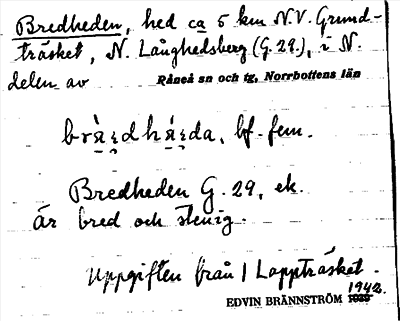 Bredheden, hed ca 5 km N.V. Grund-
träsket, N. Långhedsberg (G.29.), i N.
delen av Råneå sn och tg, Norrbottens län
bf. fem.
Bredheden G. 29, ek.
är bred och stenig.
Uppgiften från 1 Lappträsket.
EDVIN BRÄNNSTRÖM 1942.